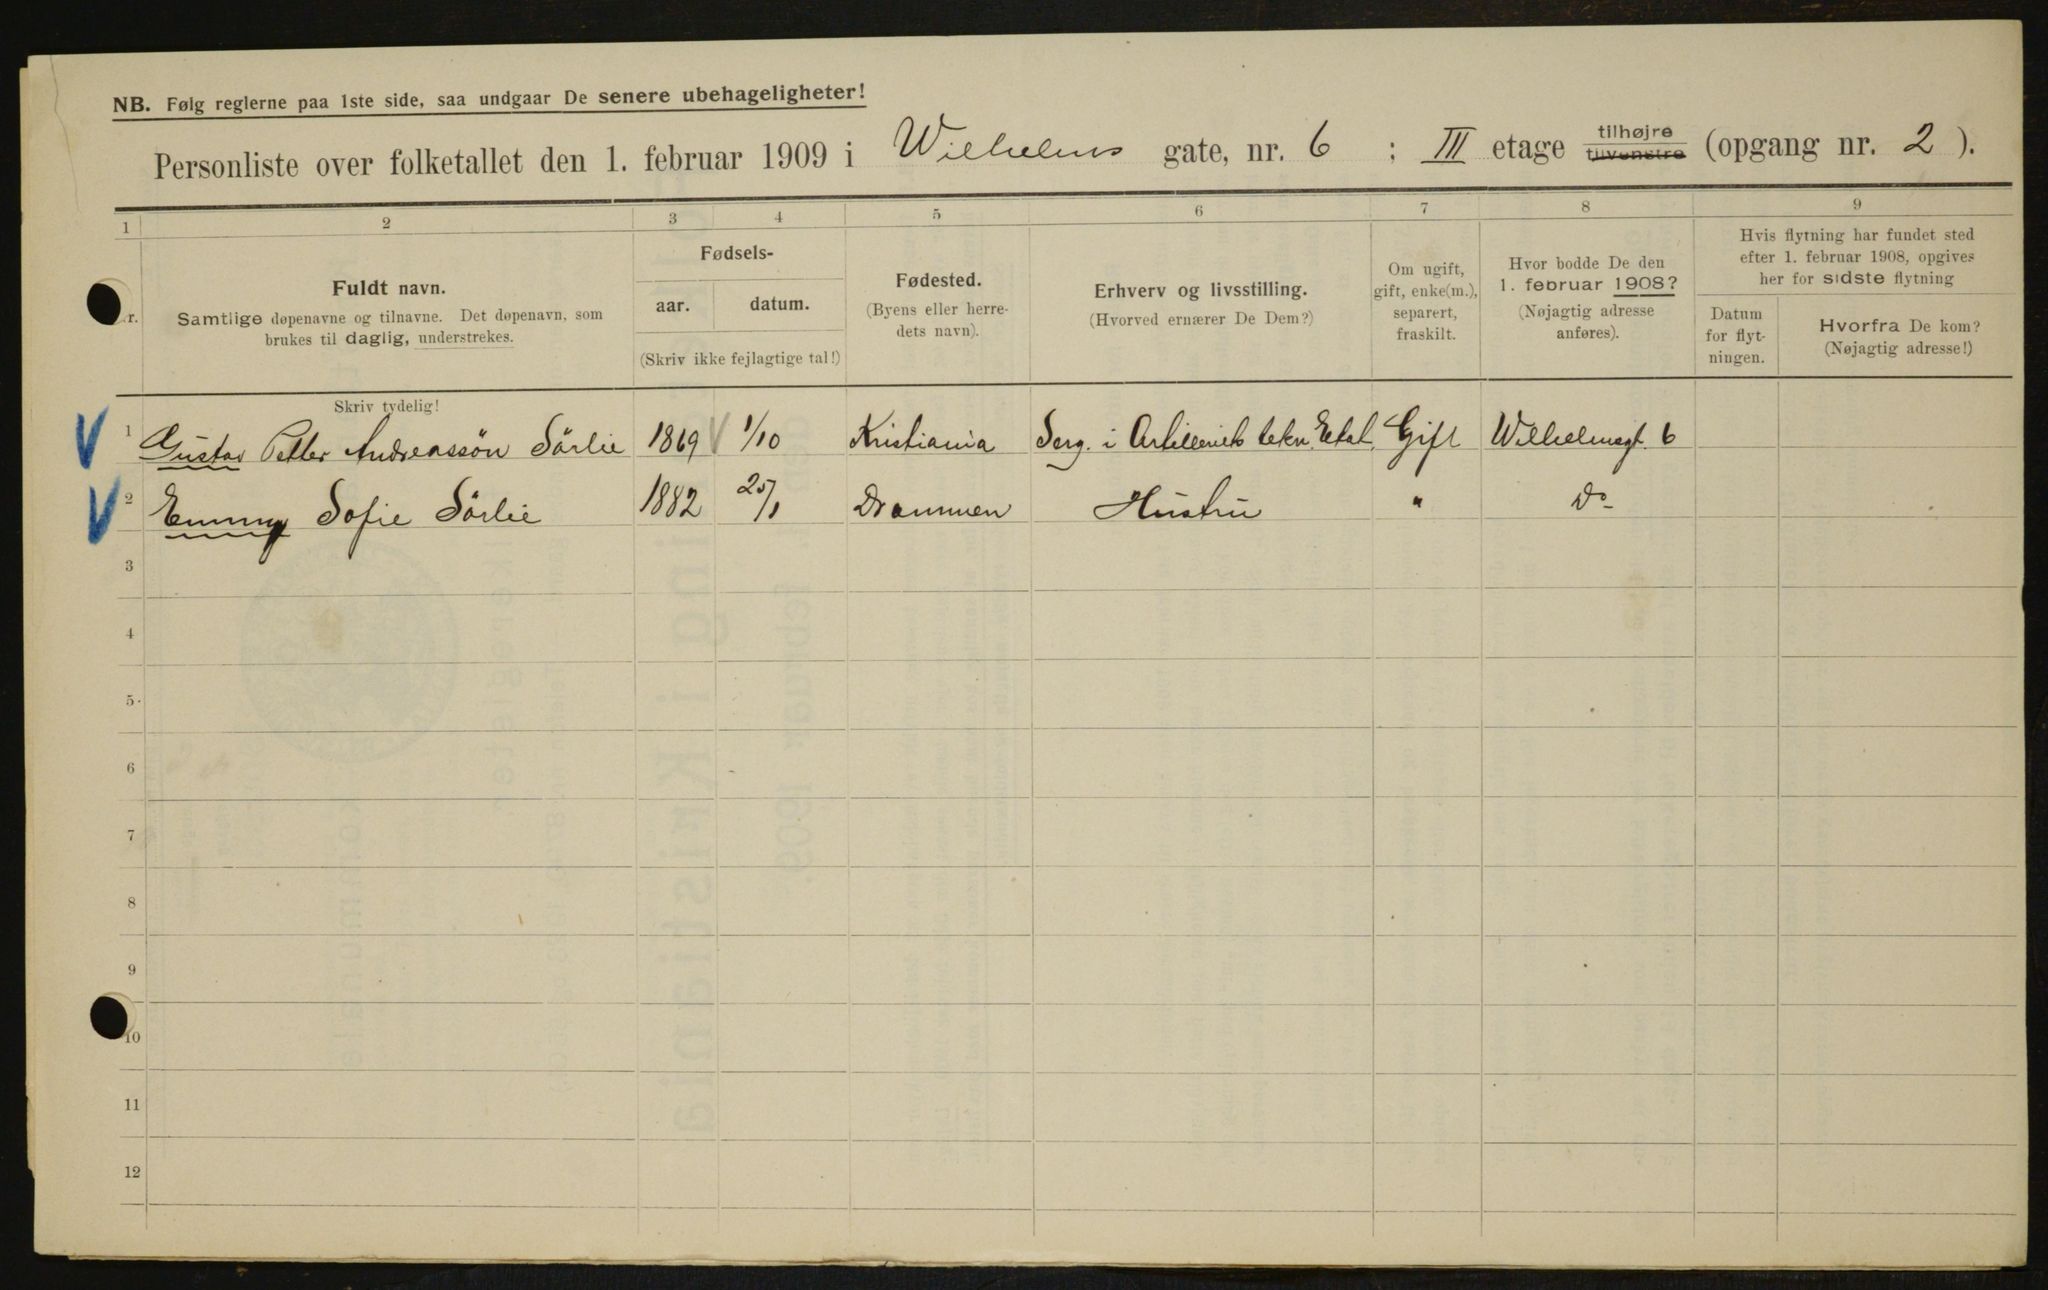 NB. Følg reglerne paa 1ste side, saa undgaar De senere ubehageligheter!
Personliste over folketallet den 1. februar 1909 i Wilhelms gate, nr. 6 ; III etage tilhøjre tilvenstre (opgang nr. 2 ).
1 2 3 4 5 6 7 8 9
r.
Fuldt navn.
Samtlige døpenavne og tilnavne. Det døpenavn, som
brukes til daglig, understrekes.
Skriv tydelig!
Fødsels-
aar. datum.
(Skriv ikke fejlagtige tal!)
Fødested.
(Byens eller herre-
dets navn).
Erhverv og livsstilling.
(Hvorved ernærer De Dem?)
Om ugift,
gift, enke(m.),
separert,
fraskilt.
Hvor bodde De den
1. februar 1908?
(Nøjagtig adresse
anføres).
Hvis flytning har fundet sted
efter 1. februar 1908, opgives
her for sidste flytning
Datum
for flyt-
ningen.
Hvorfra De kom?
(Nøjagtig adresse!)
1 Gustav Petter Andreassøn Sörlie 1869 1/10 Kristiania Serg. i Artilleriets tekn. Etat. Gift Wilhelmsgt. 6
2 Emmy Sofie Sörlie 1882 25/1 Drammen Hustru " Do
3
4
5
6
7
8
9
10
11
12